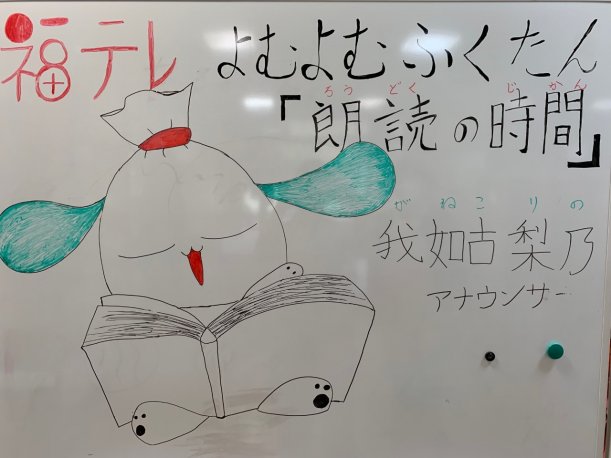 福テレ よむよむふくたん
「朗読の時間」
ろうどく じかん
がねこ りの
我如古 梨乃
アナウンサー